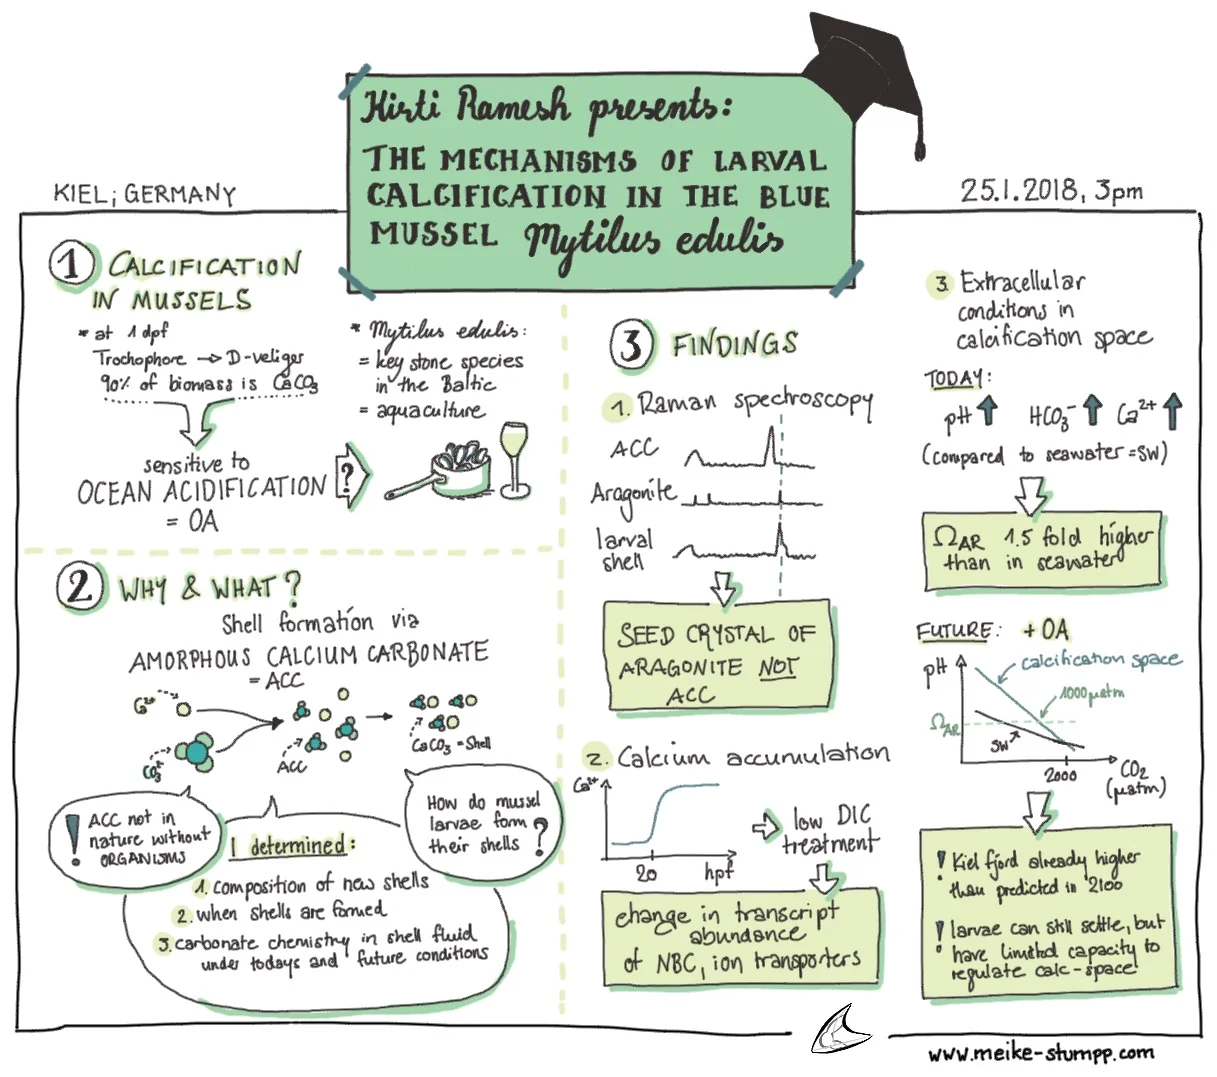 Kirti Ramesh presents:
THE MECHANISMS OF LARVAL
CALCIFICATION IN THE BLUE
MUSSEL Mytilus edulis
KIEL; GERMANY
25.1.2018, 3pm
1 CALCIFICATION
IN MUSSELS
* at 1 dpf
Trochophore → D-veliger
90% of biomass is CaCO3
sensitive to
OCEAN ACIDIFICATION
= OA
?
* Mytilus edulis:
= key stone species
in the Baltic
= aquaculture
2 WHY & WHAT?
Shell formation via
AMORPHOUS CALCIUM CARBONATE
= ACC
Ca2+
CO3 2-
ACC
CaCO3 = Shell
! ACC not in
nature without
ORGANISMS
How do mussel
larvae form
their shells ?
I determined:
1. composition of new shells
2. when shells are formed
3. carbonate chemistry in shell fluid
under todays and future conditions
3 FINDINGS
1. Raman spectroscopy
ACC
Aragonite
larval
shell
SEED CRYSTAL OF
ARAGONITE NOT
ACC
2. Calcium accumulation
Ca2+
20 hpf
low DIC
treatment
change in transcript
abundance
of NBC, ion transporters
3. Extracellular
conditions in
calcification space
TODAY:
pH ↑ HCO3- ↑ Ca2+ ↑
(compared to seawater = SW)
ΩAR 1.5 fold higher
than in seawater
FUTURE: + OA
pH
calcification space
1000 µatm
ΩAR
SW
2000
CO2
(µatm)
! Kiel fjord already higher
than predicted in 2100
! larvae can still settle, but
have limited capacity to
regulate calc-space!
www.meike-stumpp.com